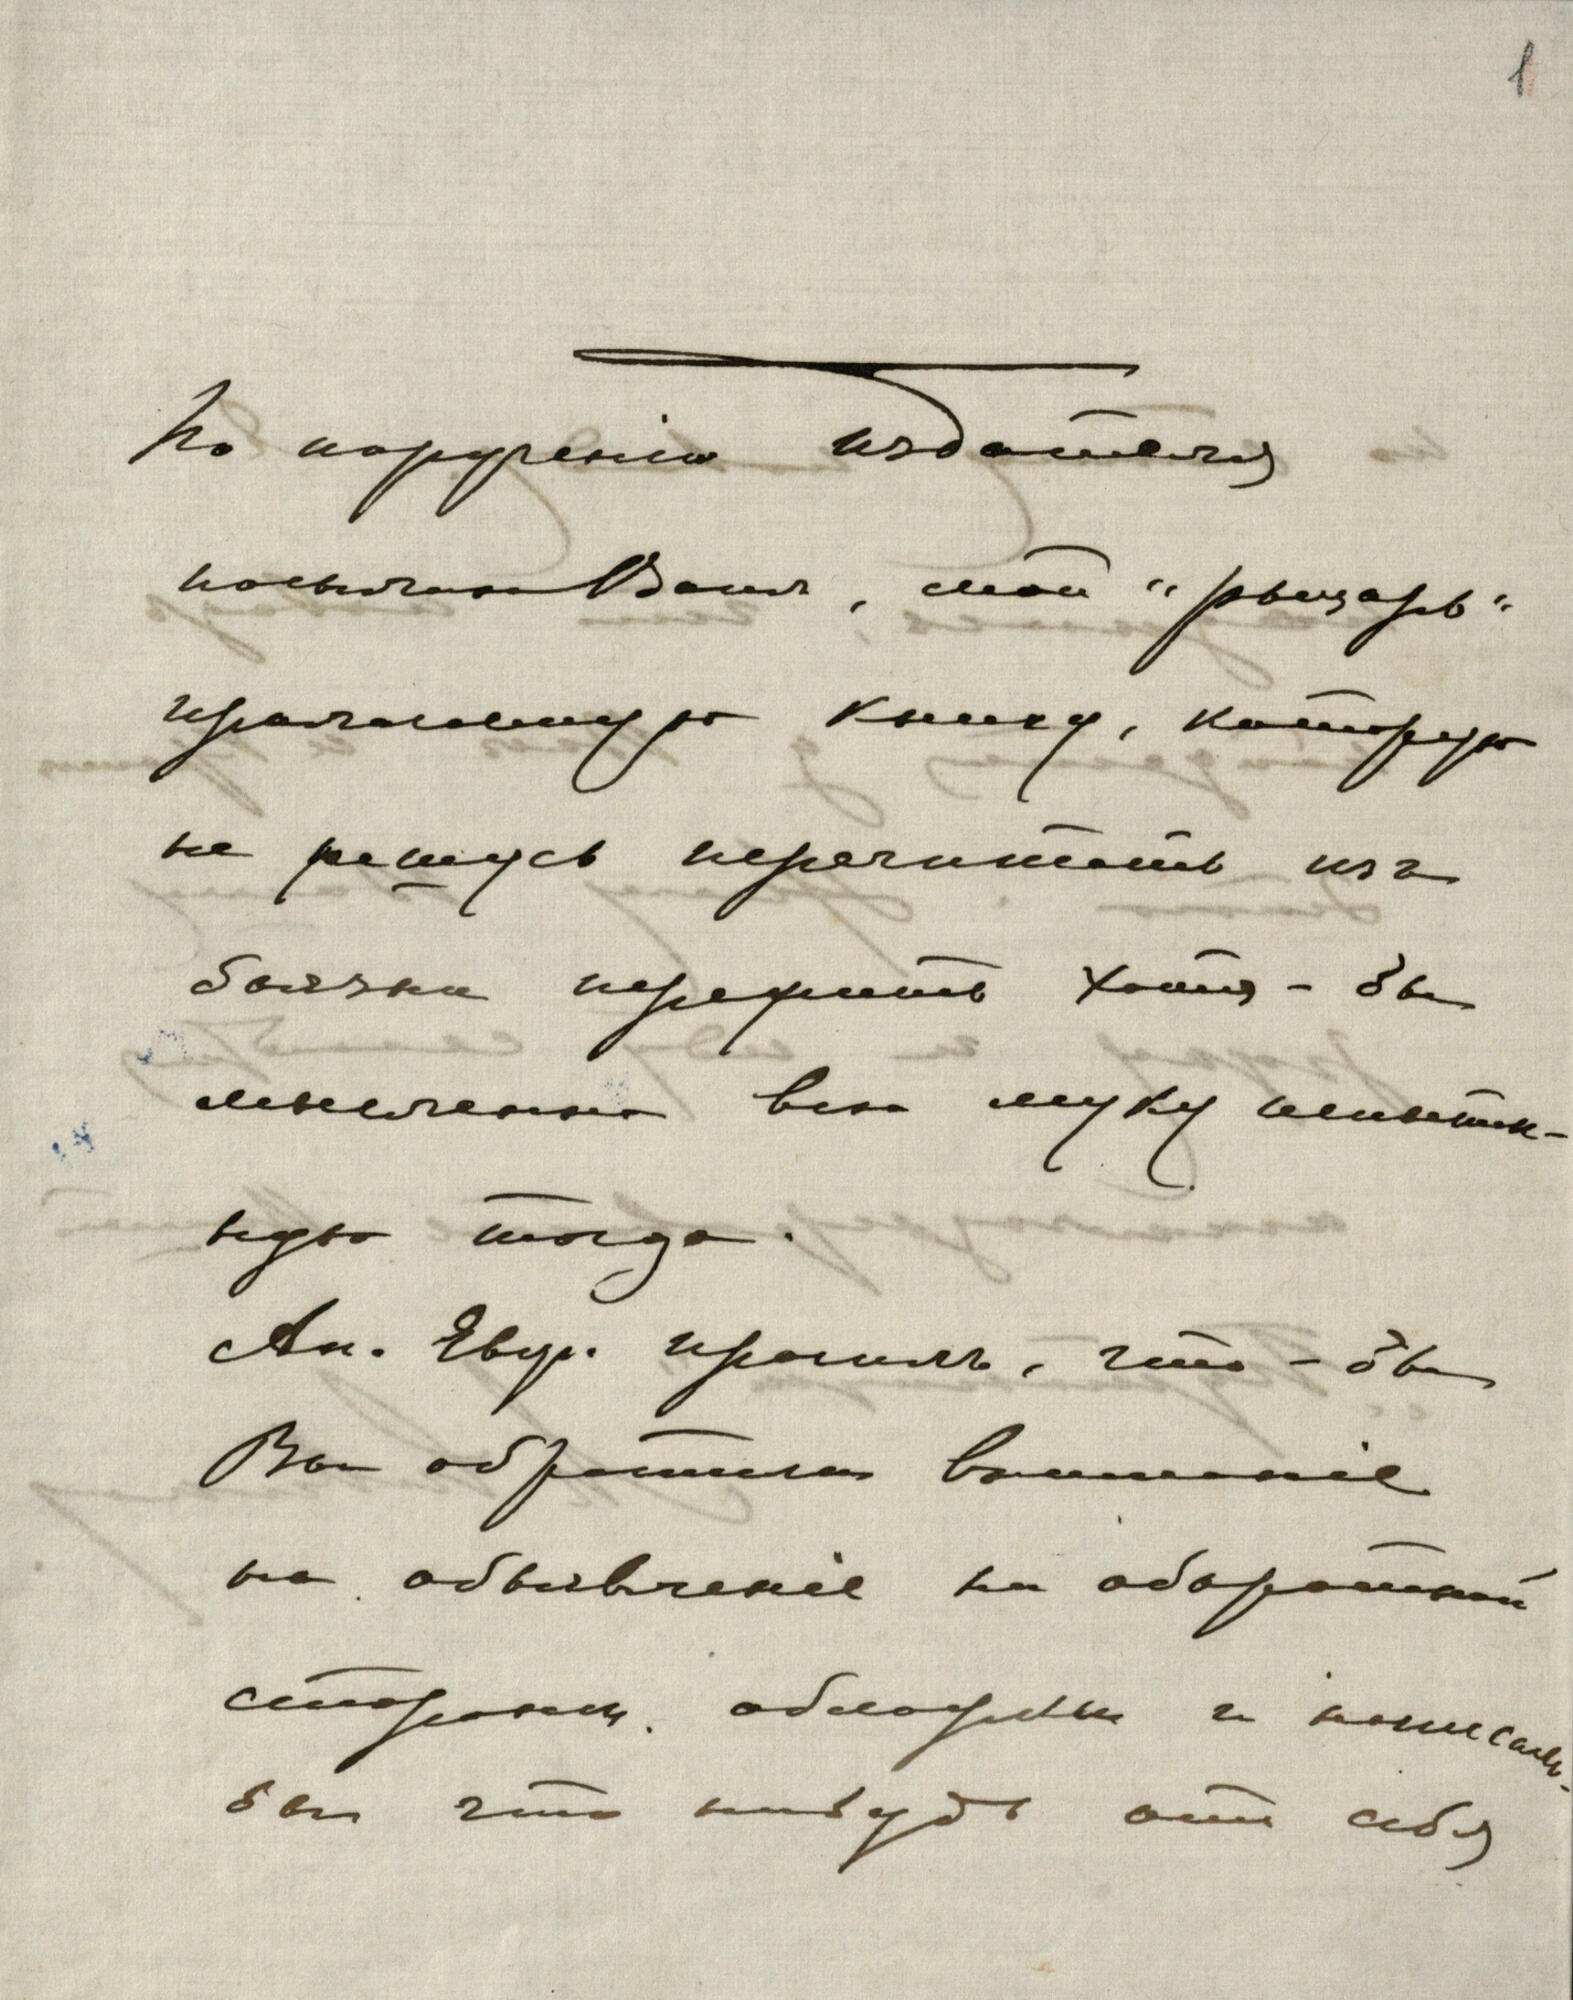 1
По порученiю издателя
посылаю Вамъ, мой "рыцарь"
прилагаемую книгу, которую
не решусь перечитать изъ
боязни пережить хотя - бы
мысленно всю муку испытан-
ную тогда.
Ан. Евгр. просилъ, что - бы
Вы обратили вниманiе
на объявленiе на оборотной
стороне обложки и написали-
бы что нибудь отъ себя